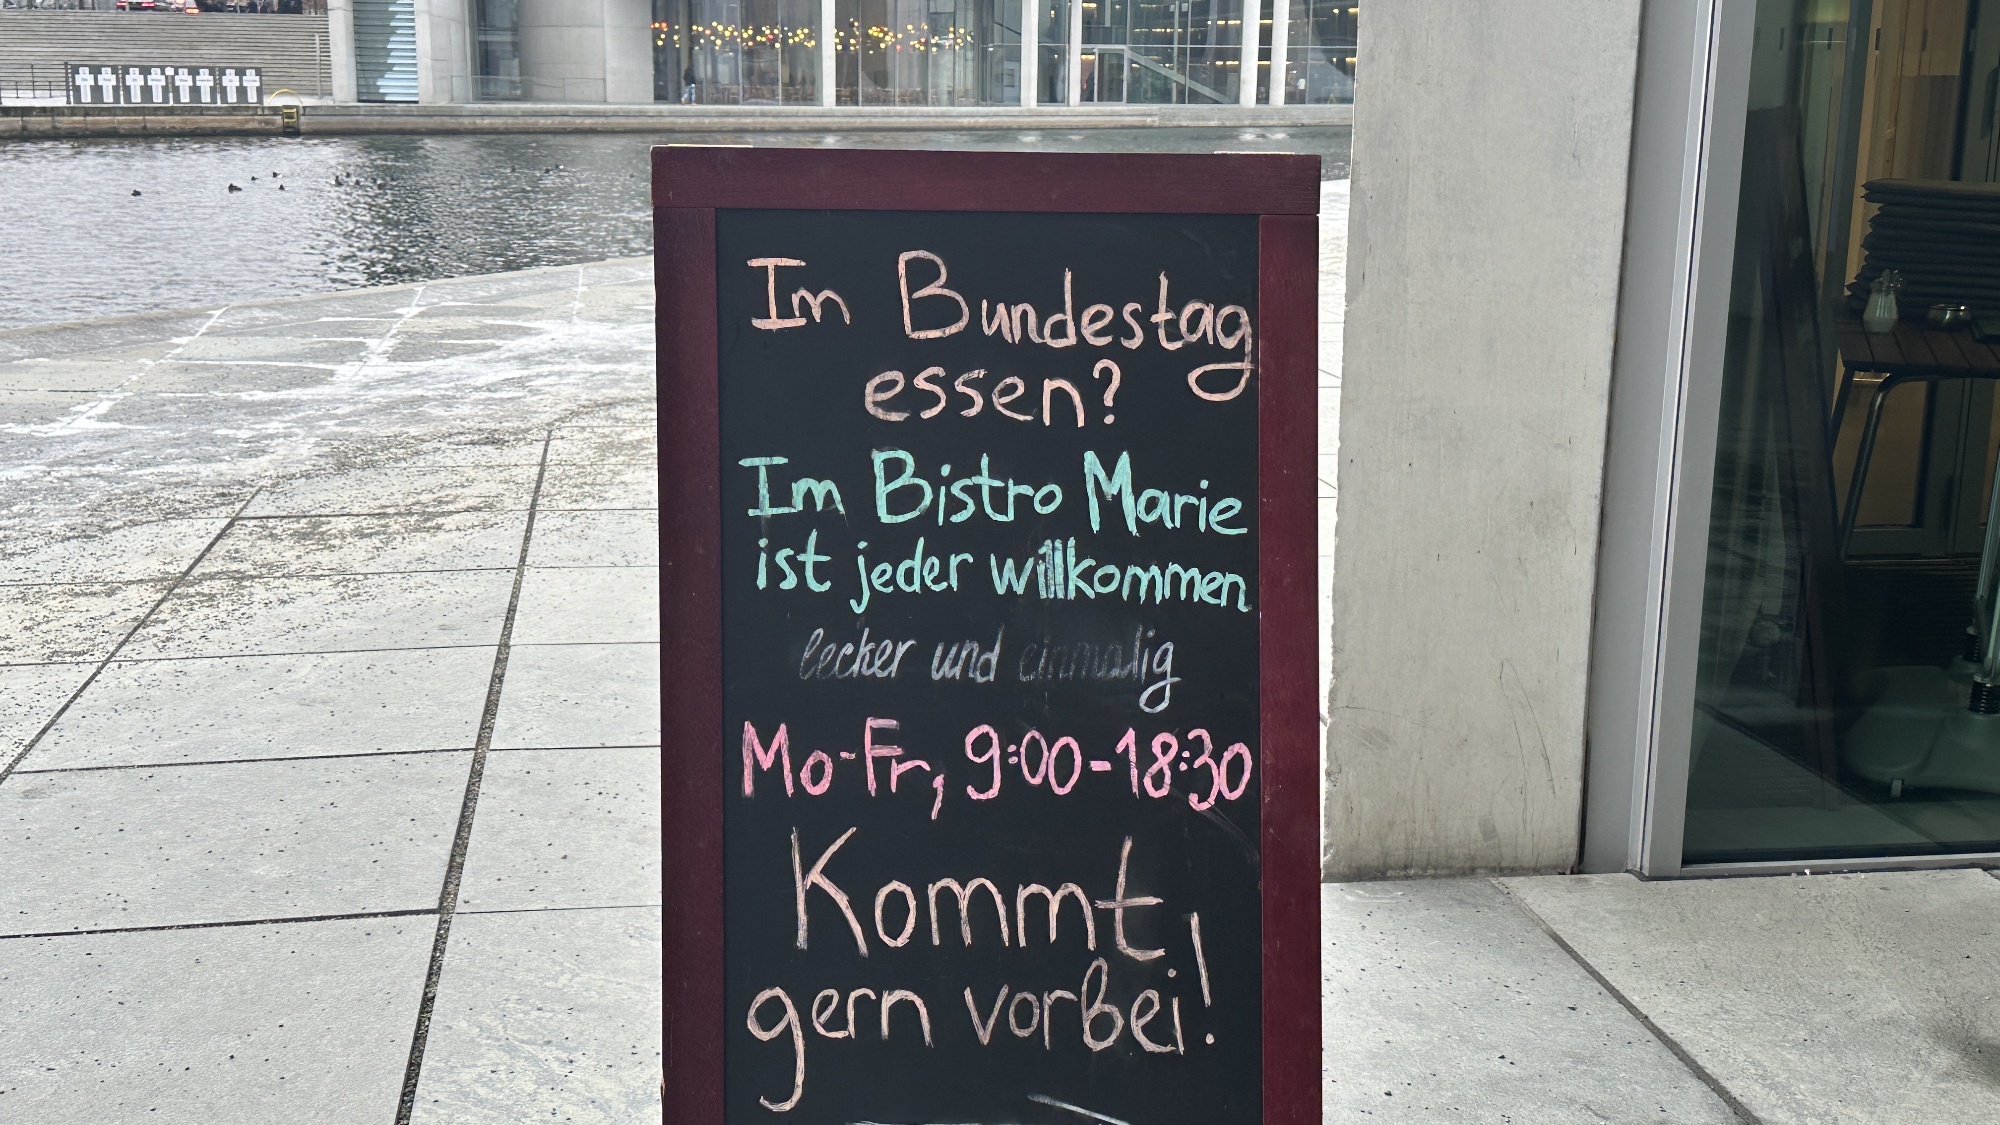 Im Bundestag
essen?
Im Bistro Marie
ist jeder willkommen
lecker und einmalig
Mo-Fr, 9:00-18:30
Kommt
gern vorbei!